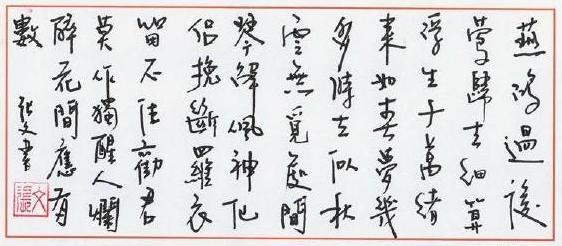 燕鴻過後
鶯歸去細算
浮生千萬緒
來如春夢幾
多時去似秋
雲無覓處聞
琴解佩神仙
侶挽斷羅衣
留不住勸君
莫作獨醒人爛
醉花間應有
數 張文書